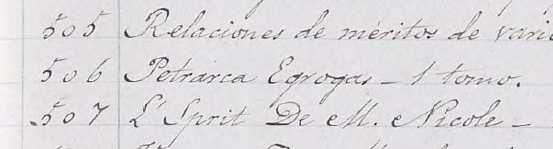 505 Relaciones de méritos de vario
506 Petrarca Egrogas - 1 tomo.
507 L'Sprit De M. Nicole -